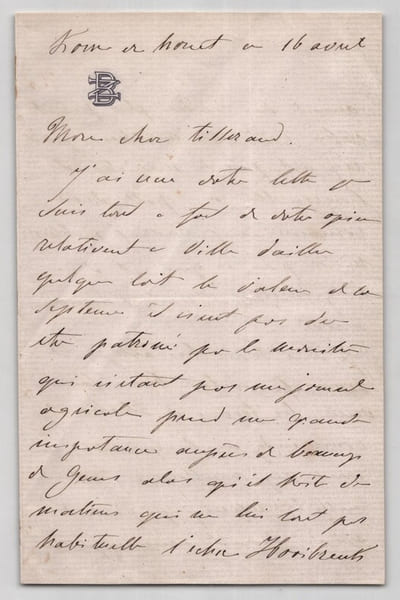 16 avril
Mon cher Tisserand.
J'ai reçu votre lettre je
suis tout a fait de votre opinion
relativement a Ville d'ailleurs
quelque soit la valeur de ce
systeme il n'eut pas du
etre patroné par le Moniteur
qui n'etant pas un journal
agricole prend une grande
importance aupres de beaucoup
de gens alors qu'il traite de
matieres qui ne lui sont pas
habituelle l'echec Hooibrenk